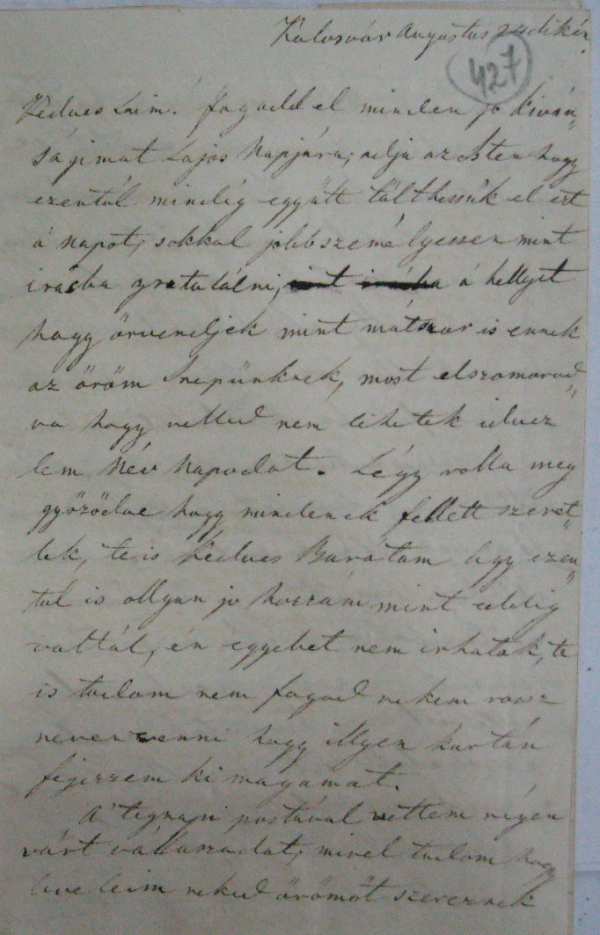 Kolosvár Augustus 24dikén
427
Kedves Laim! fogadd el minden jo kiván„
ságimat Lajos Napjára; adja az Isten hogy
ezentúl mindég együtt tölthessük el ezt
a napot; sokkal jobb személyessen mint
irásba gratulálni, a hellyet
hogy örvendjek mint mátszor is ennek
az öröm Inepünknek, most elszomorod„
va hogy velled nem lehetek idvez
lem Név Napodat. Légy rolla meg
győződve hogy mindenek fellett szeret„
lek, te is kedves Barátom légy ezen„
tul is ollyan jo hozzám mint eddig
voltál, én egyebet nem irhatok, te
is tudom nem fogod nekem rossz
neven venni hogy illyen kurtán
fejezzem ki magamat.
A tegnapi postával vettem régen
várt válaszodat; mivel tudom hogy
leveleim neked örömöt szereznek